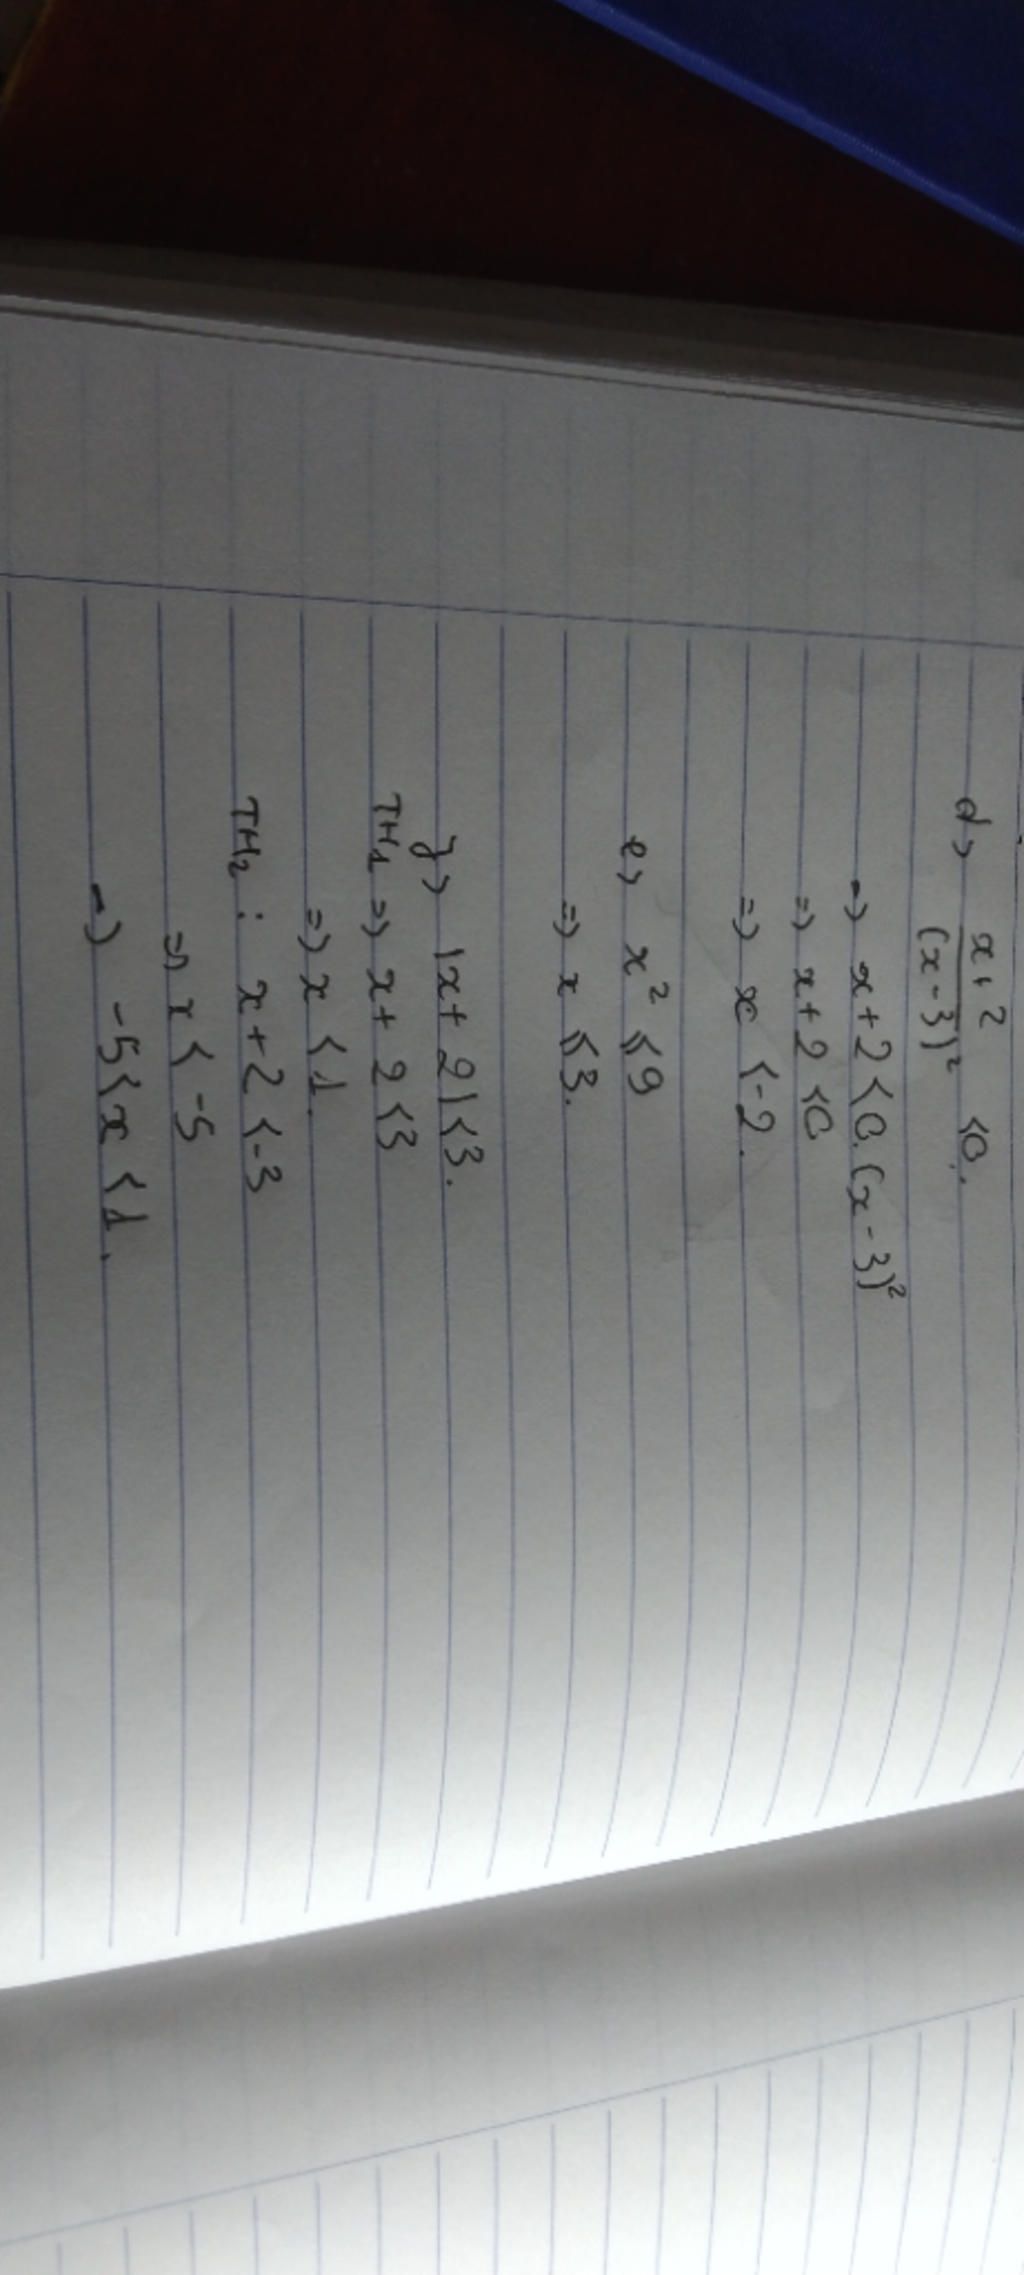 d) x+2 / (x-3)² <0.
=) x+2<0.(x-3)²
=) x+2<0
=) x <-2.
e) x² ⩽9
=) x ⩽3.
f) |x+2|<3.
TH1 =) x+2<3
=) x<1.
TH2: x+2<-3
=) x<-5
=) -5<x<1.